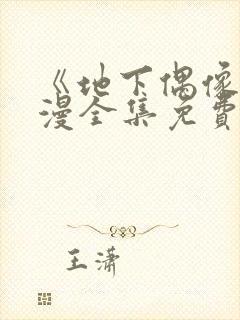 《地下偶像
漫全集免費
王瀟